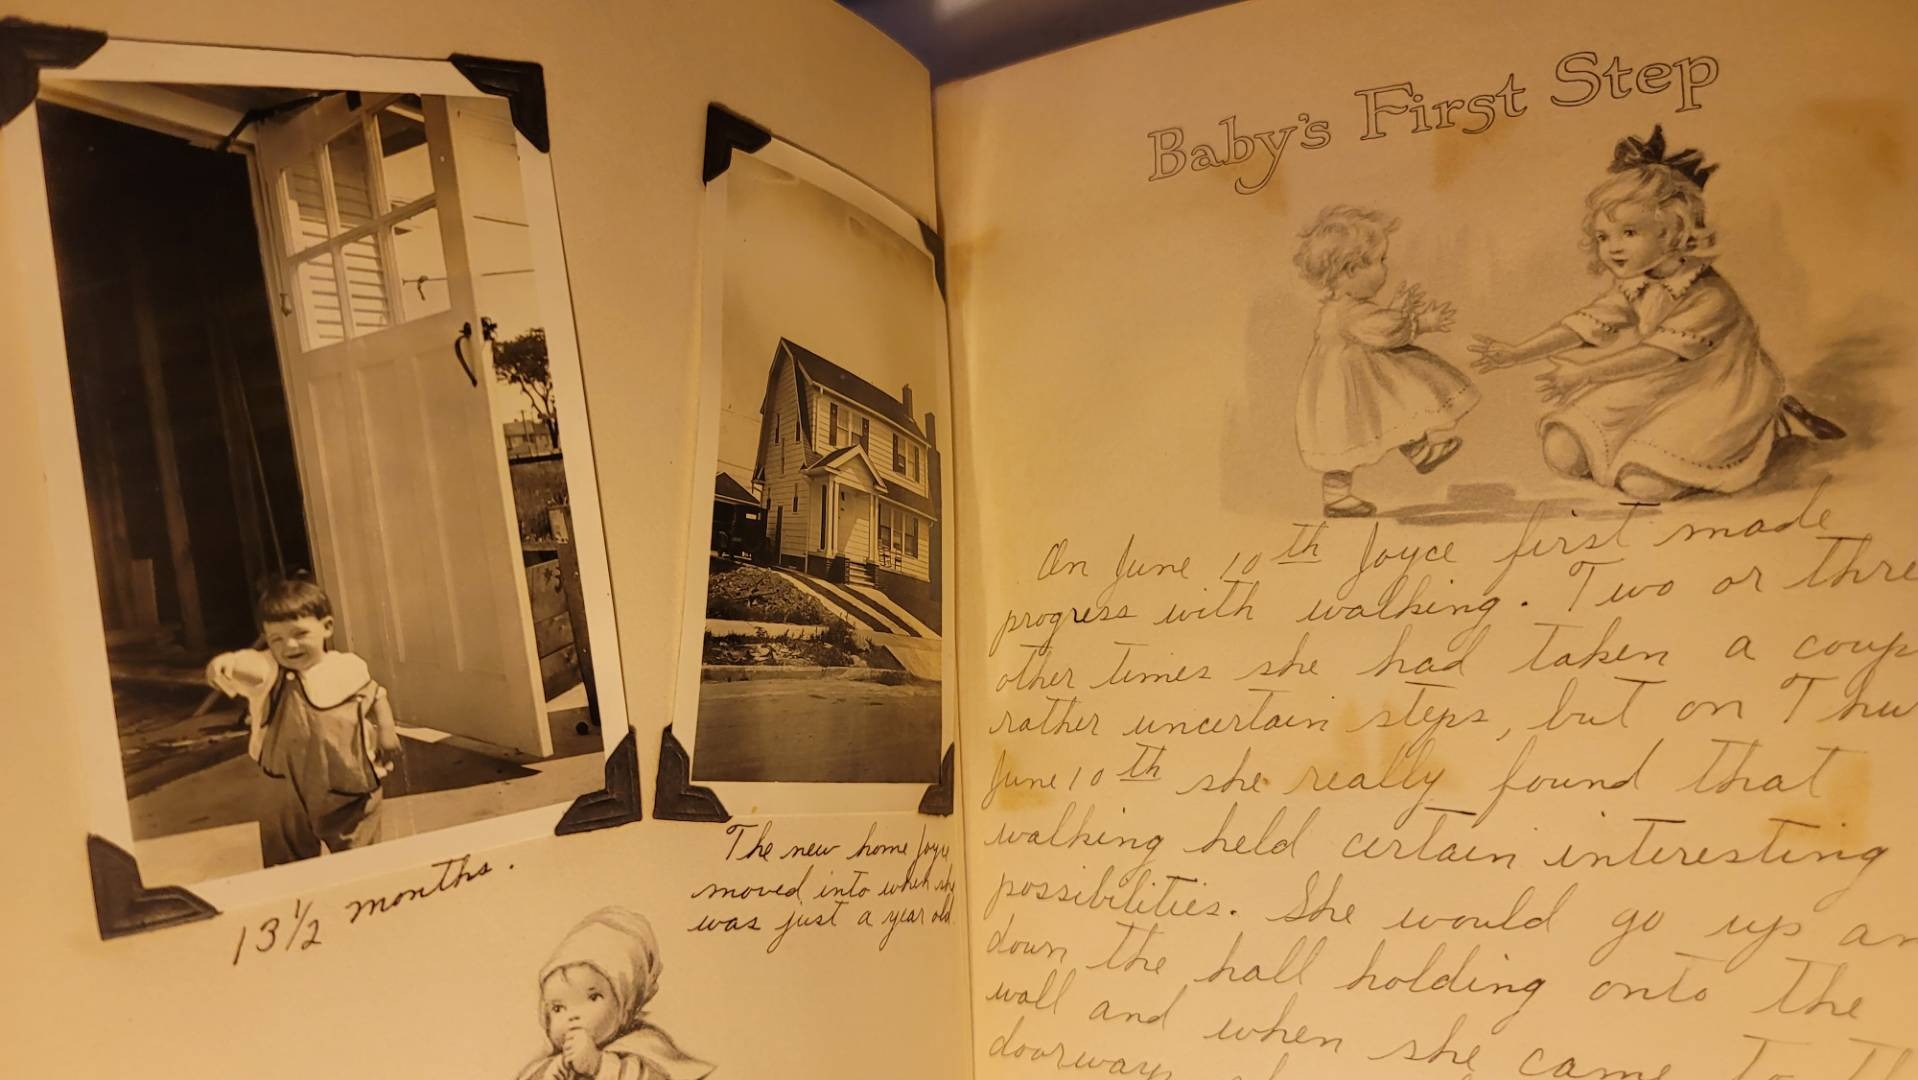 13 1/2 months.
The new home Joyce
moved into when she
was just a year old.
Baby's First Step
On June 10th Joyce first made
progress with walking. Two or thre
other times she had taken a coup
rather uncertain steps, but on Thu
June 10th she really found that
walking held certain interesting
possibilities. She would go up an
down the hall holding onto the
wall and when she came to th
doorway